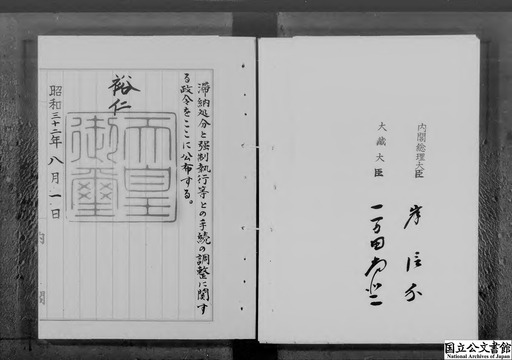 内閣総理大臣
岸信介
大蔵大臣
一万田尚登
滞納処分と強制執行等との手続の調整に関す
る政令をここに公布する。
裕仁
天皇
御璽
昭和三十二年八月一日
国立公文書館
National Archives of Japan